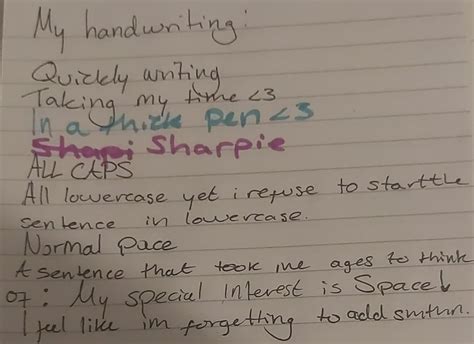 My handwriting:
Quickly writing
Taking my time <3
In a thick pen <3
Shapi Sharpie
ALL CAPS
All lowercase yet i refuse to starttle
sentence in lowercase.
Normal Pace
A sentence that took me ages to think
of: My special interest is Space!
I feel like im forgetting to add smthn.